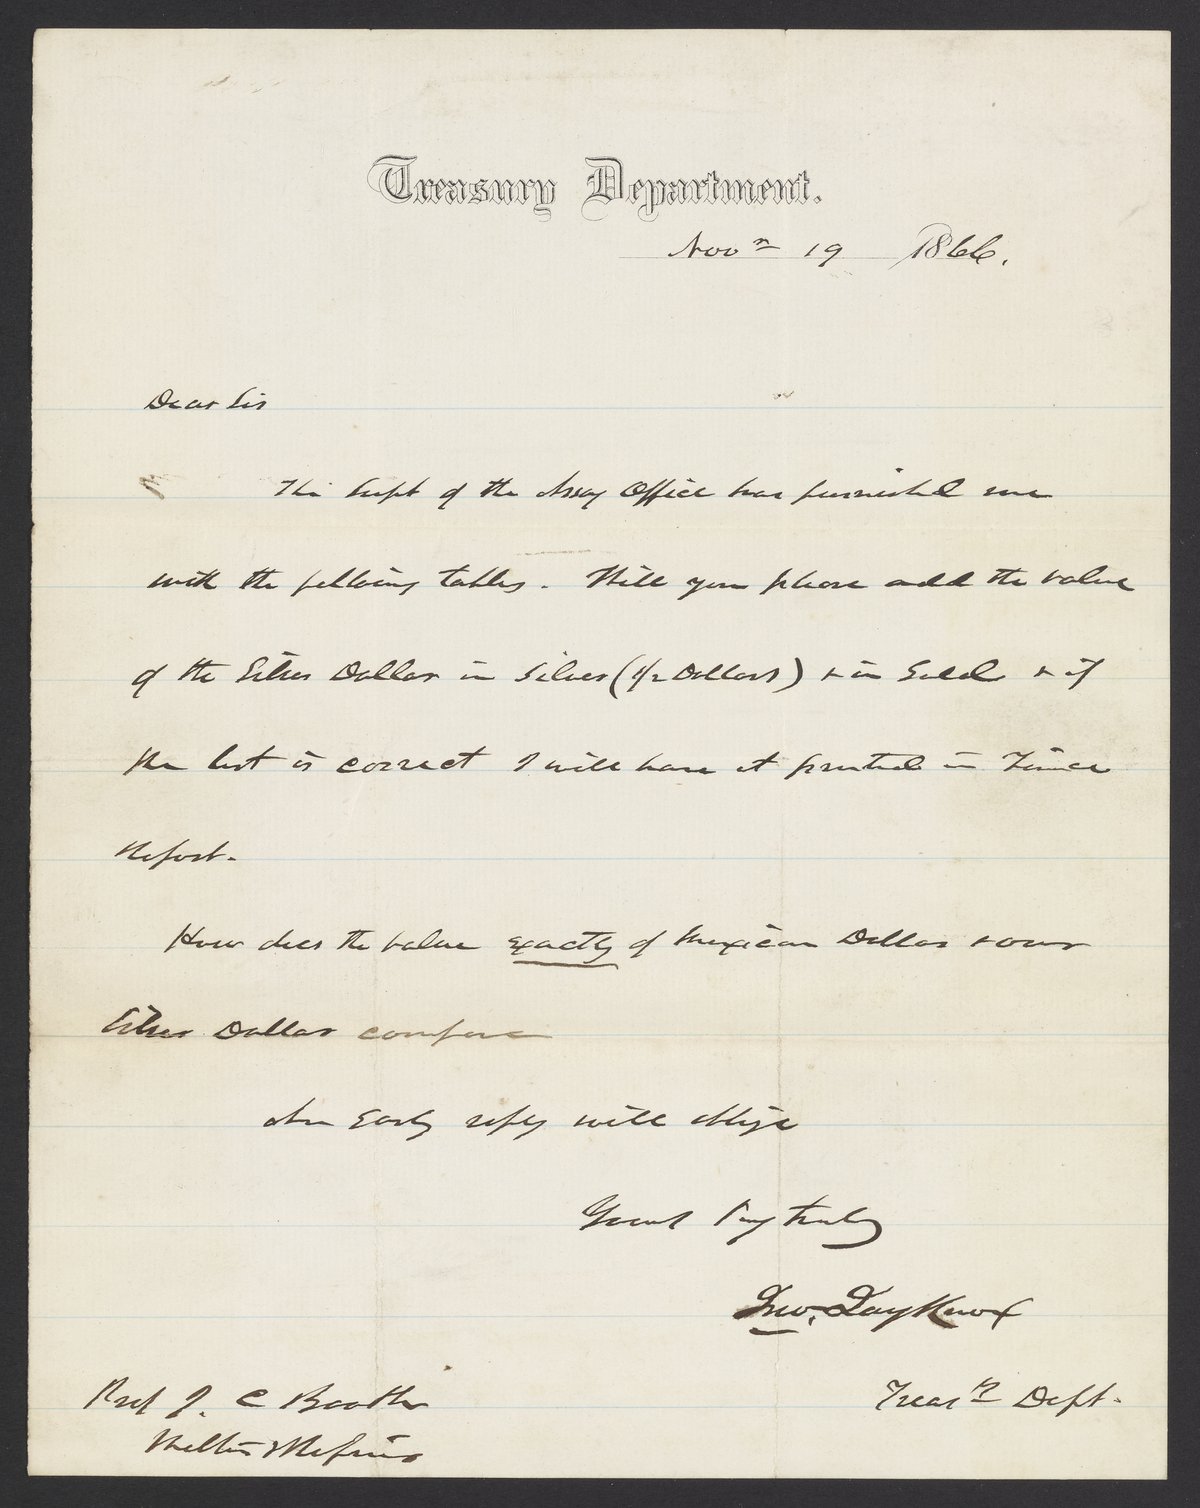 Treasury Department.
Novr 19 1866.
Dear Sir
The Supt of the Assay Office has furnished me
with the following tables. Will you please add the value
of the Silver Dollar in Silver (1/2 Dollars) & in Gold & if
the list is correct I will have it printed in Fince
Report.
How does the value exactly of Mexican Dollar & our
Silver Dollar compare
An Early reply will oblige
Yours Very truly
Jno. Jay Knox
Treasy Dept.
Prof J. C Booth
Melter & Refiner